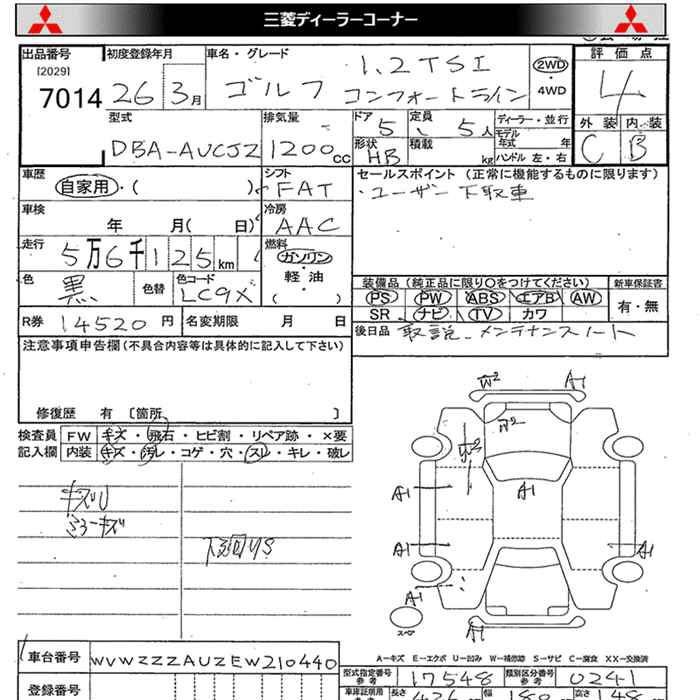 三菱ディーラーコーナー
出品番号 初度登録年月 車名・グレード 評価点
[2029]
7014 26 3月 ゴルフ 1.2TSI コンフォートライン 2WD ・ 4WD 4
型式 排気量 ドア 定員 ディーラー・並行 外装 内装
DBA-AUCJZ 1200cc 5 5人 モデル年式 年 C B
形状 HB 積載 kg ハンドル 左・右
車歴 シフト セールスポイント (正常に機能するものに限ります)
自家用・( ) FAT ・ユーザー下取車
車検 年 月( 日) 冷房 AAC
走行 5万6千125km 燃料 ガソリン・軽油・( )
色 黒 色替 色コード LC9X
装備品 (純正品に限り○をつけてください) 新車保証書
PS PW ABS エアB AW 有・無
SR ナビ TV カワ
R券 14520円 名変期限 月 日
後日品 取説、メンテナンスノート
注意事項申告欄(不具合内容等は具体的に記入して下さい)
修復歴 有 〔箇所 〕
検査員 FW キズ・飛石・ヒビ割・リペア跡・×要
記入欄 内装 キズ・汚レ・コゲ・穴・スレ・キレ・破レ
キズU
ミラーキズ
下回りS
W2 A1
W2
W2
A1 A1
A1 A1
A1
A1
スペア
A－キズ E－エクボ U－凹み W－補修跡 S－サビ C－腐食 XX－交換済
車台番号 WVWZZZAUZEW210440
型式指定番号 参考 17548 類別区分番号 参考 0241
登録番号
車庫証明用 参考 長さ 幅 高さ 148